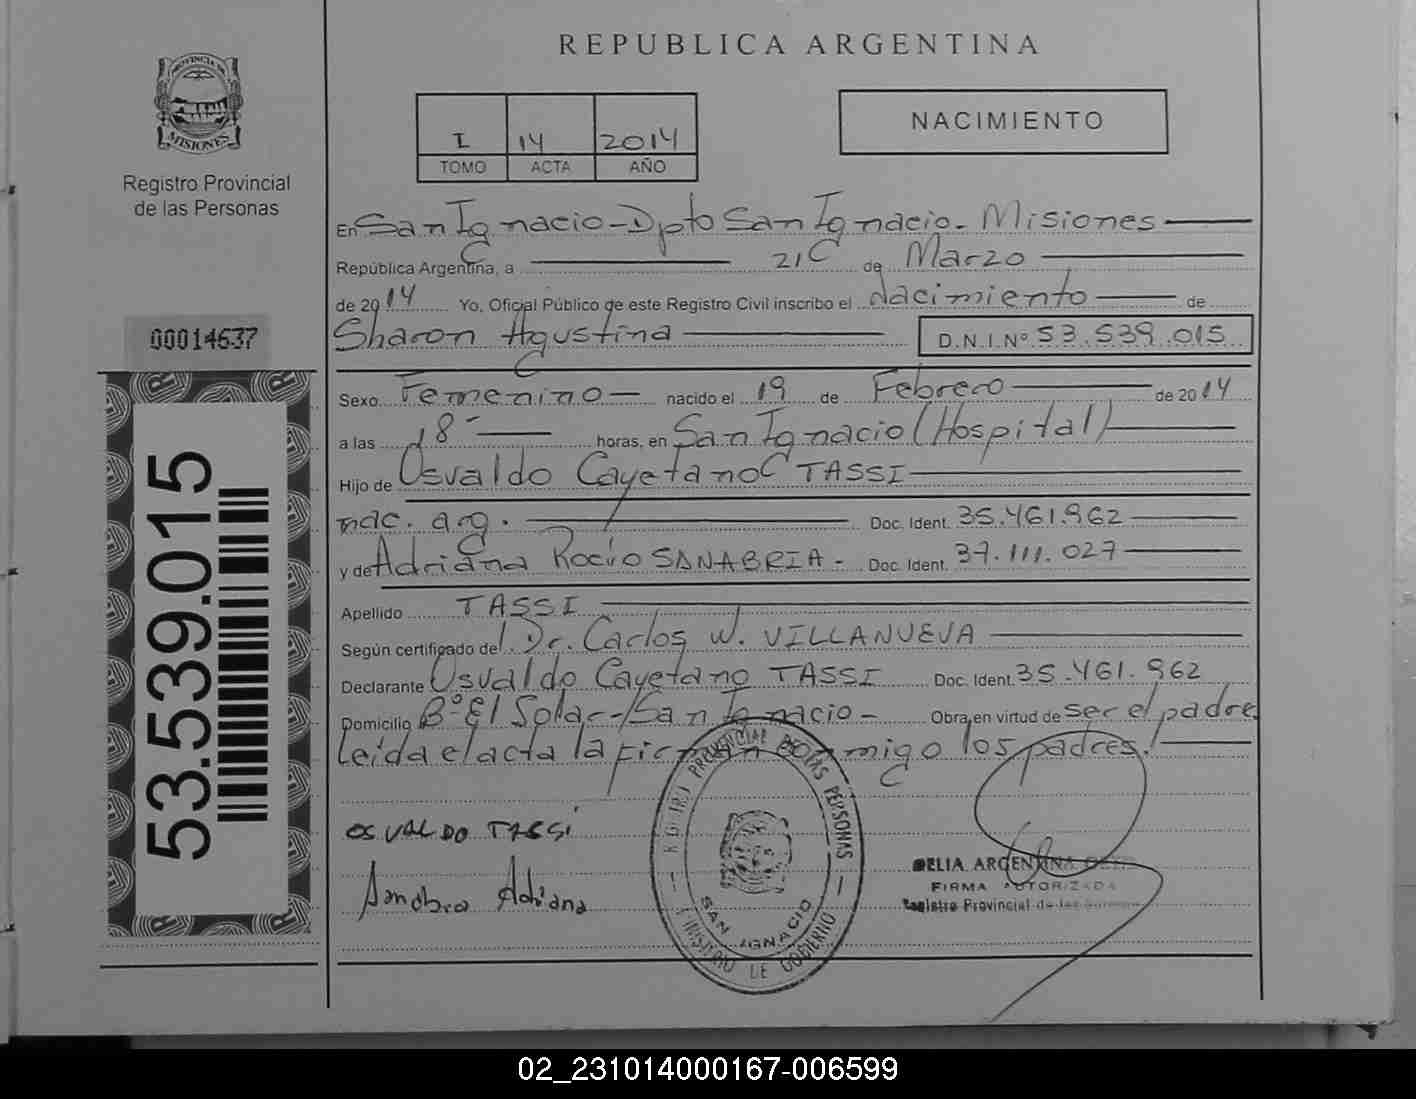 REPUBLICA ARGENTINA
PROVINCIA DE
MISIONES
Registro Provincial
de las Personas
I 14 2014
TOMO ACTA AÑO
NACIMIENTO
En San Ignacio - Dpto San Ignacio. Misiones
República Argentina, a 21 de Marzo
de 2014 Yo, Oficial Público de este Registro Civil inscribo el nacimiento de
Sharon Agustina D.N.I.Nº 53.539.015
00014637
Sexo Femenino nacido el 19 de Febrero de 2014
a las 18 horas, en San Ignacio (Hospital)
Hijo de Osvaldo Cayetano TASSI
nac. arg. Doc. Ident. 35.461.962
y de Adriana Rocío SANABRIA - Doc. Ident. 37.111.027
Apellido TASSI
Según certificado del Dr. Carlos W. VILLANUEVA
Declarante Osvaldo Cayetano TASSI Doc. Ident. 35.461.962
Domicilio Bº El Solar - San Ignacio - Obra en virtud de ser el padre
Leída el acta la firman conmigo los padres.
53.539.015
OSVALDO TASSI
Sanabria Adriana
REGISTRO PROVINCIAL DE LAS PERSONAS
SAN IGNACIO
MINISTERIO DE GOBIERNO
DELIA ARGENTINA
FIRMA AUTORIZADA
Registro Provincial de las Personas
02_231014000167-006599